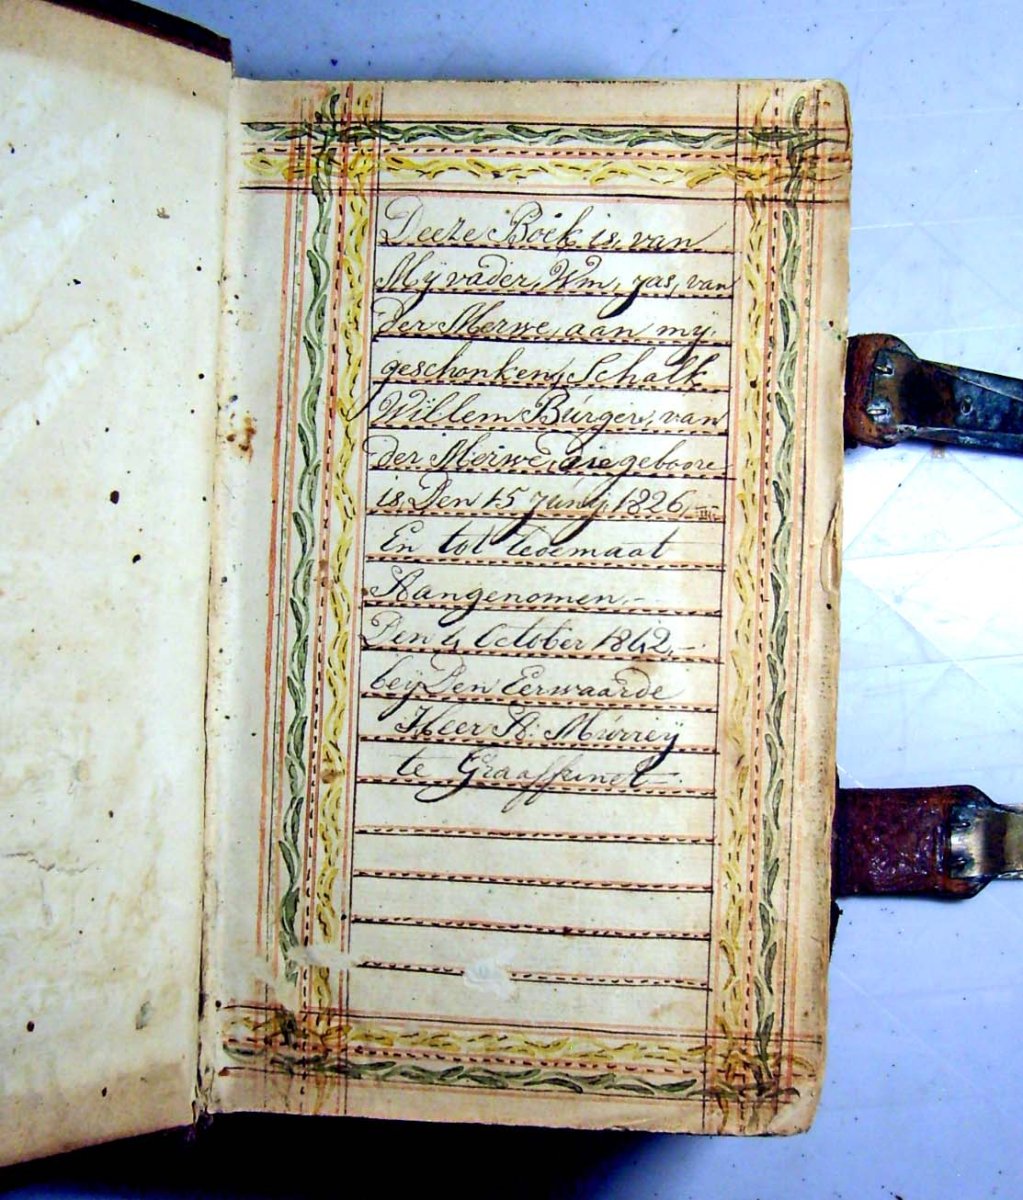 Deeze Boek is, van
Mij vader, Wm, Jas, van
Der Merwe, aan mij.
geschonken, Schalk
Willem Búrger, van
der Merwe, die geboore
is, Den 15 Júnij, 1826,
En tot ledemaat
Aangenomen,-
Den 4, October 1842,-
beij Den Eerwaarde
Heer A: Múrreÿ
te Graaffrinet-.